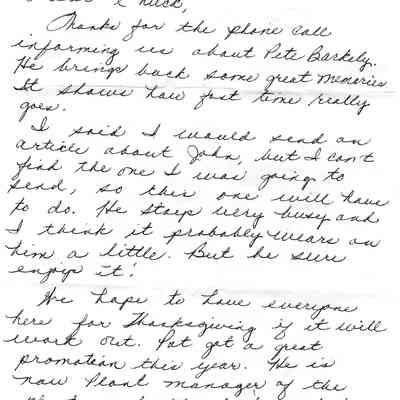 Chuck,
Thanks for the phone call
informing us about Pete Barkely.
He brings back some great memories
It shows how fast time really
goes.
I said I would send an
article about John, but I can't
find the one I was going to
send, so this one will have
to do. He stays very busy and
I think it probably wears on
him a little. But he sure
enjoys it!
We hope to have everyone
here for Thanksgiving if it will
work out. Pat got a great
promotion this year. He is
now Plant manager of the